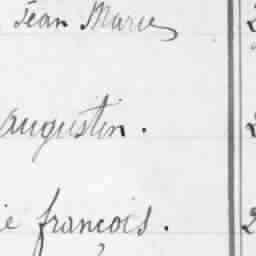 Jean Marie
augustin.
ie françois.